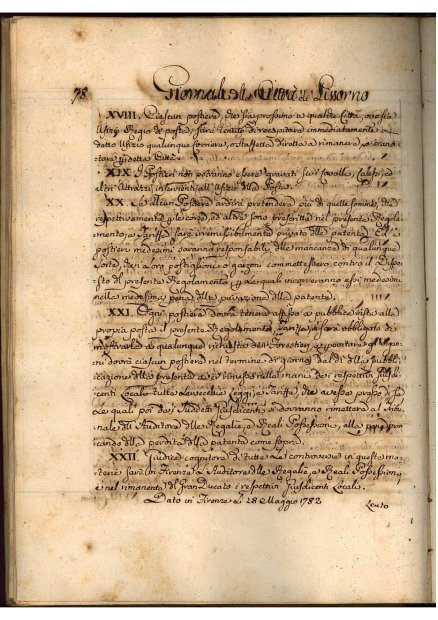 78 Giornale della Città di Livorno
XVIII. Ciascun postiere, che sia prossimo a qualche Città, ove sia
Ufizio Regio di posta, sarà tenuto di recapitare immediatamente a
detto Ufizio qualunque corriere, o staffetta diretta a rimanere, o
XIX. I Postieri non potranno essere gravati Cavalli, Calessi, ed
altri Attrazzi inservienti all' Ufizio della Posta.
XX. Se alcun Postiere ardirà pretendere più di quelle somme, che
respettivamente le corse, ed altro sono prescritte nel presente Regola-
mento, e Tariffa sarà irremissibilmente privato della patente. Ed i
postieri medesimi saranno responsabili delle mancanze di qualunque
sorta, che i Loro postiglioni, o garzoni commettessero contro il dispo-
sto del presente Regolamento, per le quali incorreranno essi medesimi
nella medesima pena della privazione della patente.
XXI. Ogni postiere dovrà tenere affisso a pubblica vista alla
propria posta il presente Regolamento, e Tariffa, e sarà obbligato di
mostrarlo a qualunque richiesta dei Forestieri, e
dovrà ciascun postiere nel termine di giorni dal dì della pubbli-
cazione della presente aver rimesse nelle mani dei respettivi Giusdi-
centi Locali tutte le vecchie Leggi, e Tariffe, che avesse presso di se
Le quali poi dai sudetti Giusdicenti si dovranno rimettere al Tribu-
nale dell' Auditore delle Regalie, e Reali Possessioni, alla pena man-
cando della perdita della patente come sopra.
XXII. Giudice cognitore di tutte le controversie in questa ma-
teria sarà in Firenze L' Auditore delle Regalie, e Reali Possessioni,
e nel rimanente del Gran Ducato i respettivi Giusdicenti Locali.
Dato in Firenze Li 28 Maggio 1782